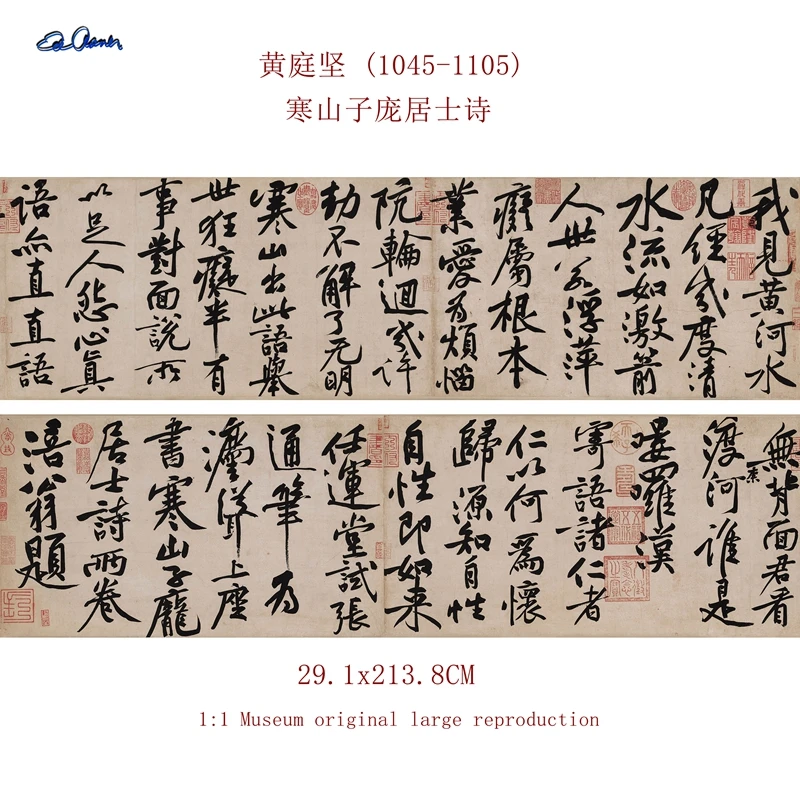 黄庭坚 (1045-1105)
寒山子庞居士诗
我見黃河水
凡經幾度清
水流如激箭
人世若浮萍
癡屬根本
業愛為煩惱
阬輪迴幾許
劫不解了无明
寒山出此語舉
世狂癡半有
事對面說所
以足人怨心真
語亦直直語
無背面君看
渡河誰是
嘍羅漢
寄語諸仁者
仁以何為懷
歸源知自性
自性即如來
任運堂試張
通筆為
灋聳上座
書寒山子龐
居士詩兩卷
涪翁題
29.1x213.8CM
1:1 Museum original large reproduction